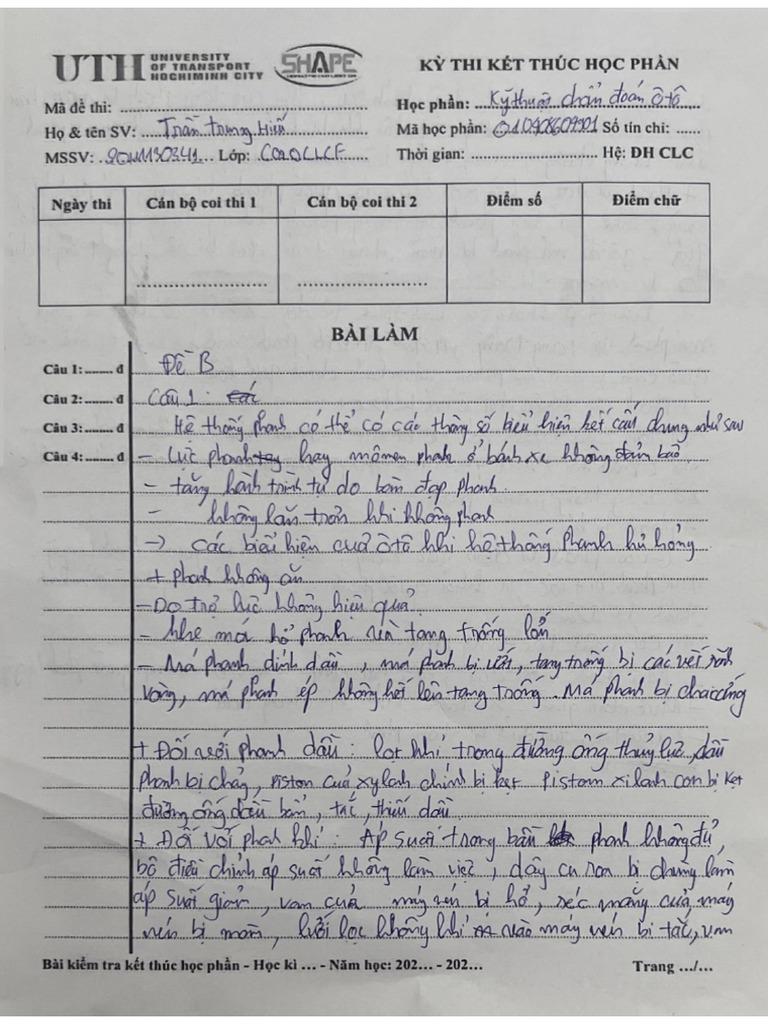 UTH UNIVERSITY OF TRANSPORT HOCHIMINH CITY SHAPE
KỲ THI KẾT THÚC HỌC PHẦN
Mã đề thi: ........
Học phần: Kỹ thuật chẩn đoán ô tô
Họ & tên SV: Trần trung Hiếu
Mã học phần: Số tín chỉ: ......
MSSV: Lớp: CO20CLCF
Thời gian: ........ Hệ: ĐH CLC
Ngày thi Cán bộ coi thi 1 Cán bộ coi thi 2 Điểm số Điểm chữ
BÀI LÀM
Câu 1: ....... đ Đề B
Câu 2: ....... đ Câu 1:
Câu 3: ....... đ Hệ thống phanh có thể có các thông số biểu hiện kết cấu chung như sau
Câu 4: ....... đ - Lực phanh hay mômen phanh ở bánh xe không đảm bảo
- tăng hành trình tự do bàn đạp phanh.
- không lăn trơn khi không phanh
-> các biểu hiện của ô tô khi hệ thống Phanh hư hỏng
+ phanh không ăn
- Do trợ lực không hiệu quả.
- khe má hở phanh và tang trống lớn
- Má phanh dính dầu, má phanh bị ướt, tang trống bị các vết rãnh
vòng, má phanh ép không hết lên tang trống. Má phanh bị chai cứng
+ Đối với phanh dầu: lọt khí trong đường ống thuỷ lực, dầu
phanh bị chảy, piston của xylanh chính bị kẹt Pistom xilanh con bị kẹt
đường ống dầu bẩn, tắc, thiếu dầu.
+ Đối với phanh khí: Áp suất trong bầu phanh không đủ,
bộ điều chỉnh áp suất không làm việc, dây cu roa bị chùng làm
áp suất giảm, van của máy nén bị hở, séc măng của máy
nén bị mòn, lưới lọc không khí vào máy nén bị tắc, van
Bài kiểm tra kết thúc học phần - Học kì ... - Năm học: 202... - 202...
Trang .../...